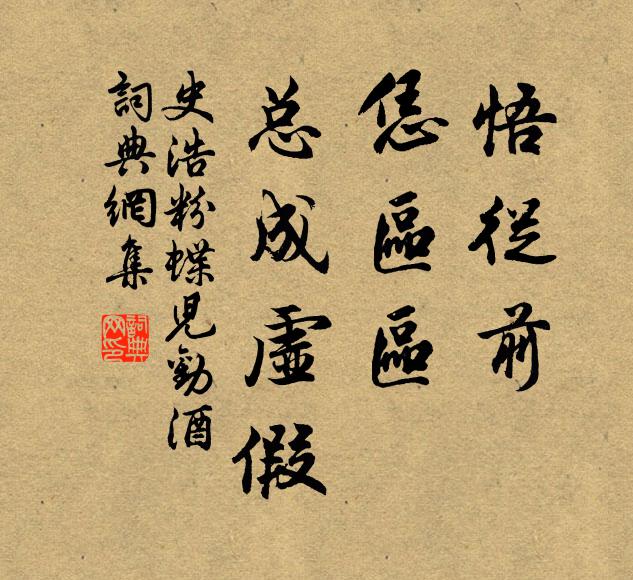 悟從前
恁區區
总成虛假
史浩粉蝶兒勸酒
詞典網集
詞典
网印